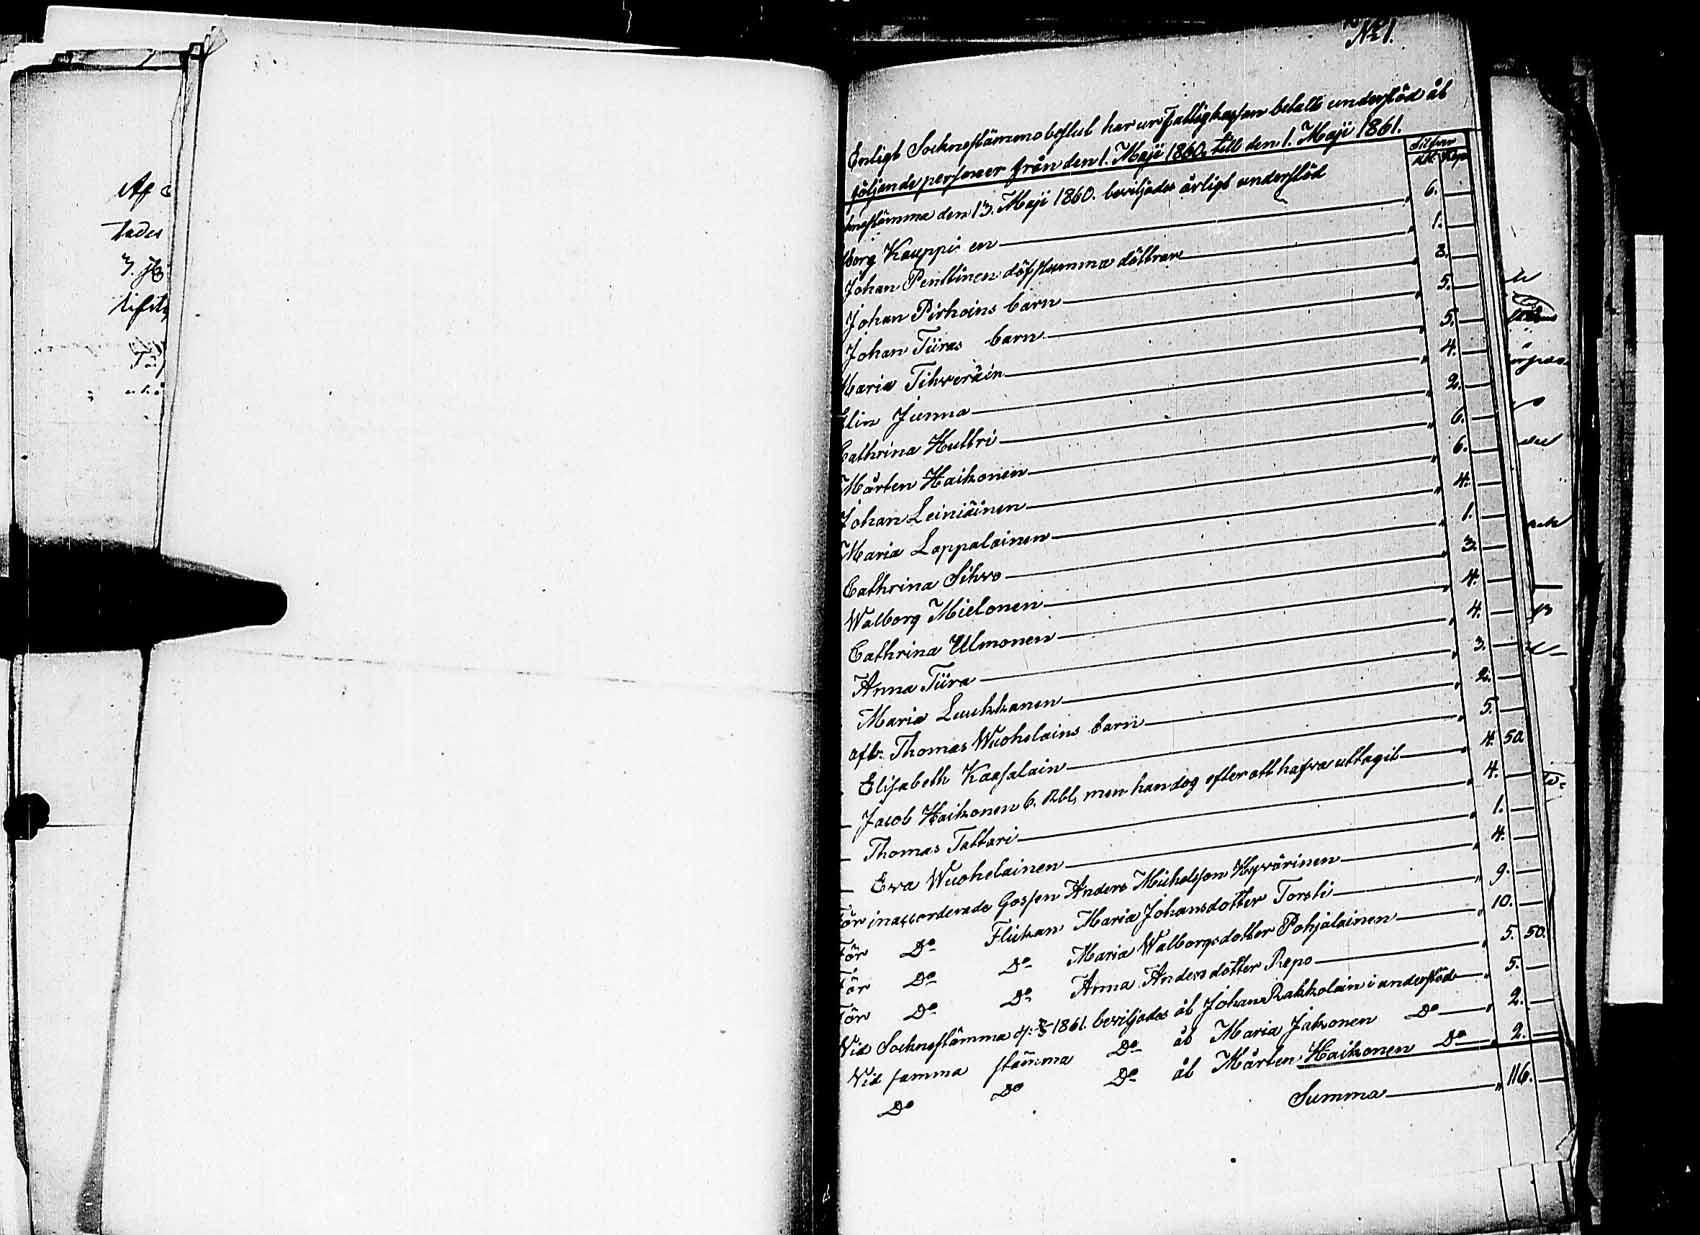 No 1.
Enligt Sockneståmmobeslut har ur Fattigkassan betalts understöd åt
följande personer från den 1. Maji 1860. till den 1. Maji 1861.
Silfver
Rbl. Kop.
nestämma den 13. Maji 1860. beviljades årligt understöd
borg Kauppi en 6.
Johan Penttinen döfstumma döttrar 1.
Johan Pirhoins barn 3.
Johan Tiiras barn 5.
Maria Tihveräin 5.
Elin Junna 4.
Cathrina Huttri 2.
Mårten Haikonen 6.
Johan Leiniäinen 6.
Maria Lappalainen 4.
Cathrina Sihvo 1.
Walborg Mielonen 3.
Cathrina Ulmonen 4.
Anna Tiira 4.
Maria Luukkanen 3.
afl. Thomas Wuohelains barn 2.
Elisabeth Kaasalain 5.
Jacob Haikonen 6. Rbl, men han dog efter att hafva uttagit 4. 50
Thomas Tattari 4.
Eva Wuohelainen 1.
För inaccorderade Gossen Anders Michelsson Hyvärinen 4.
För Do Flickan Maria Johansdotter Torsti 9.
För Do Do Maria Walborgsdotter Pohjalainen 10.
För Do Do Anna Andersdotter Repo 5. 50.
Vid Socknestämma 1861. beviljades åt Johan Rakkolain i understöd 5.
Vid samma stämma Do åt Maria Jakonen Do 2.
Do Do Do åt Mårten Haikonen Do 2.
Summa 116.
Af
tades